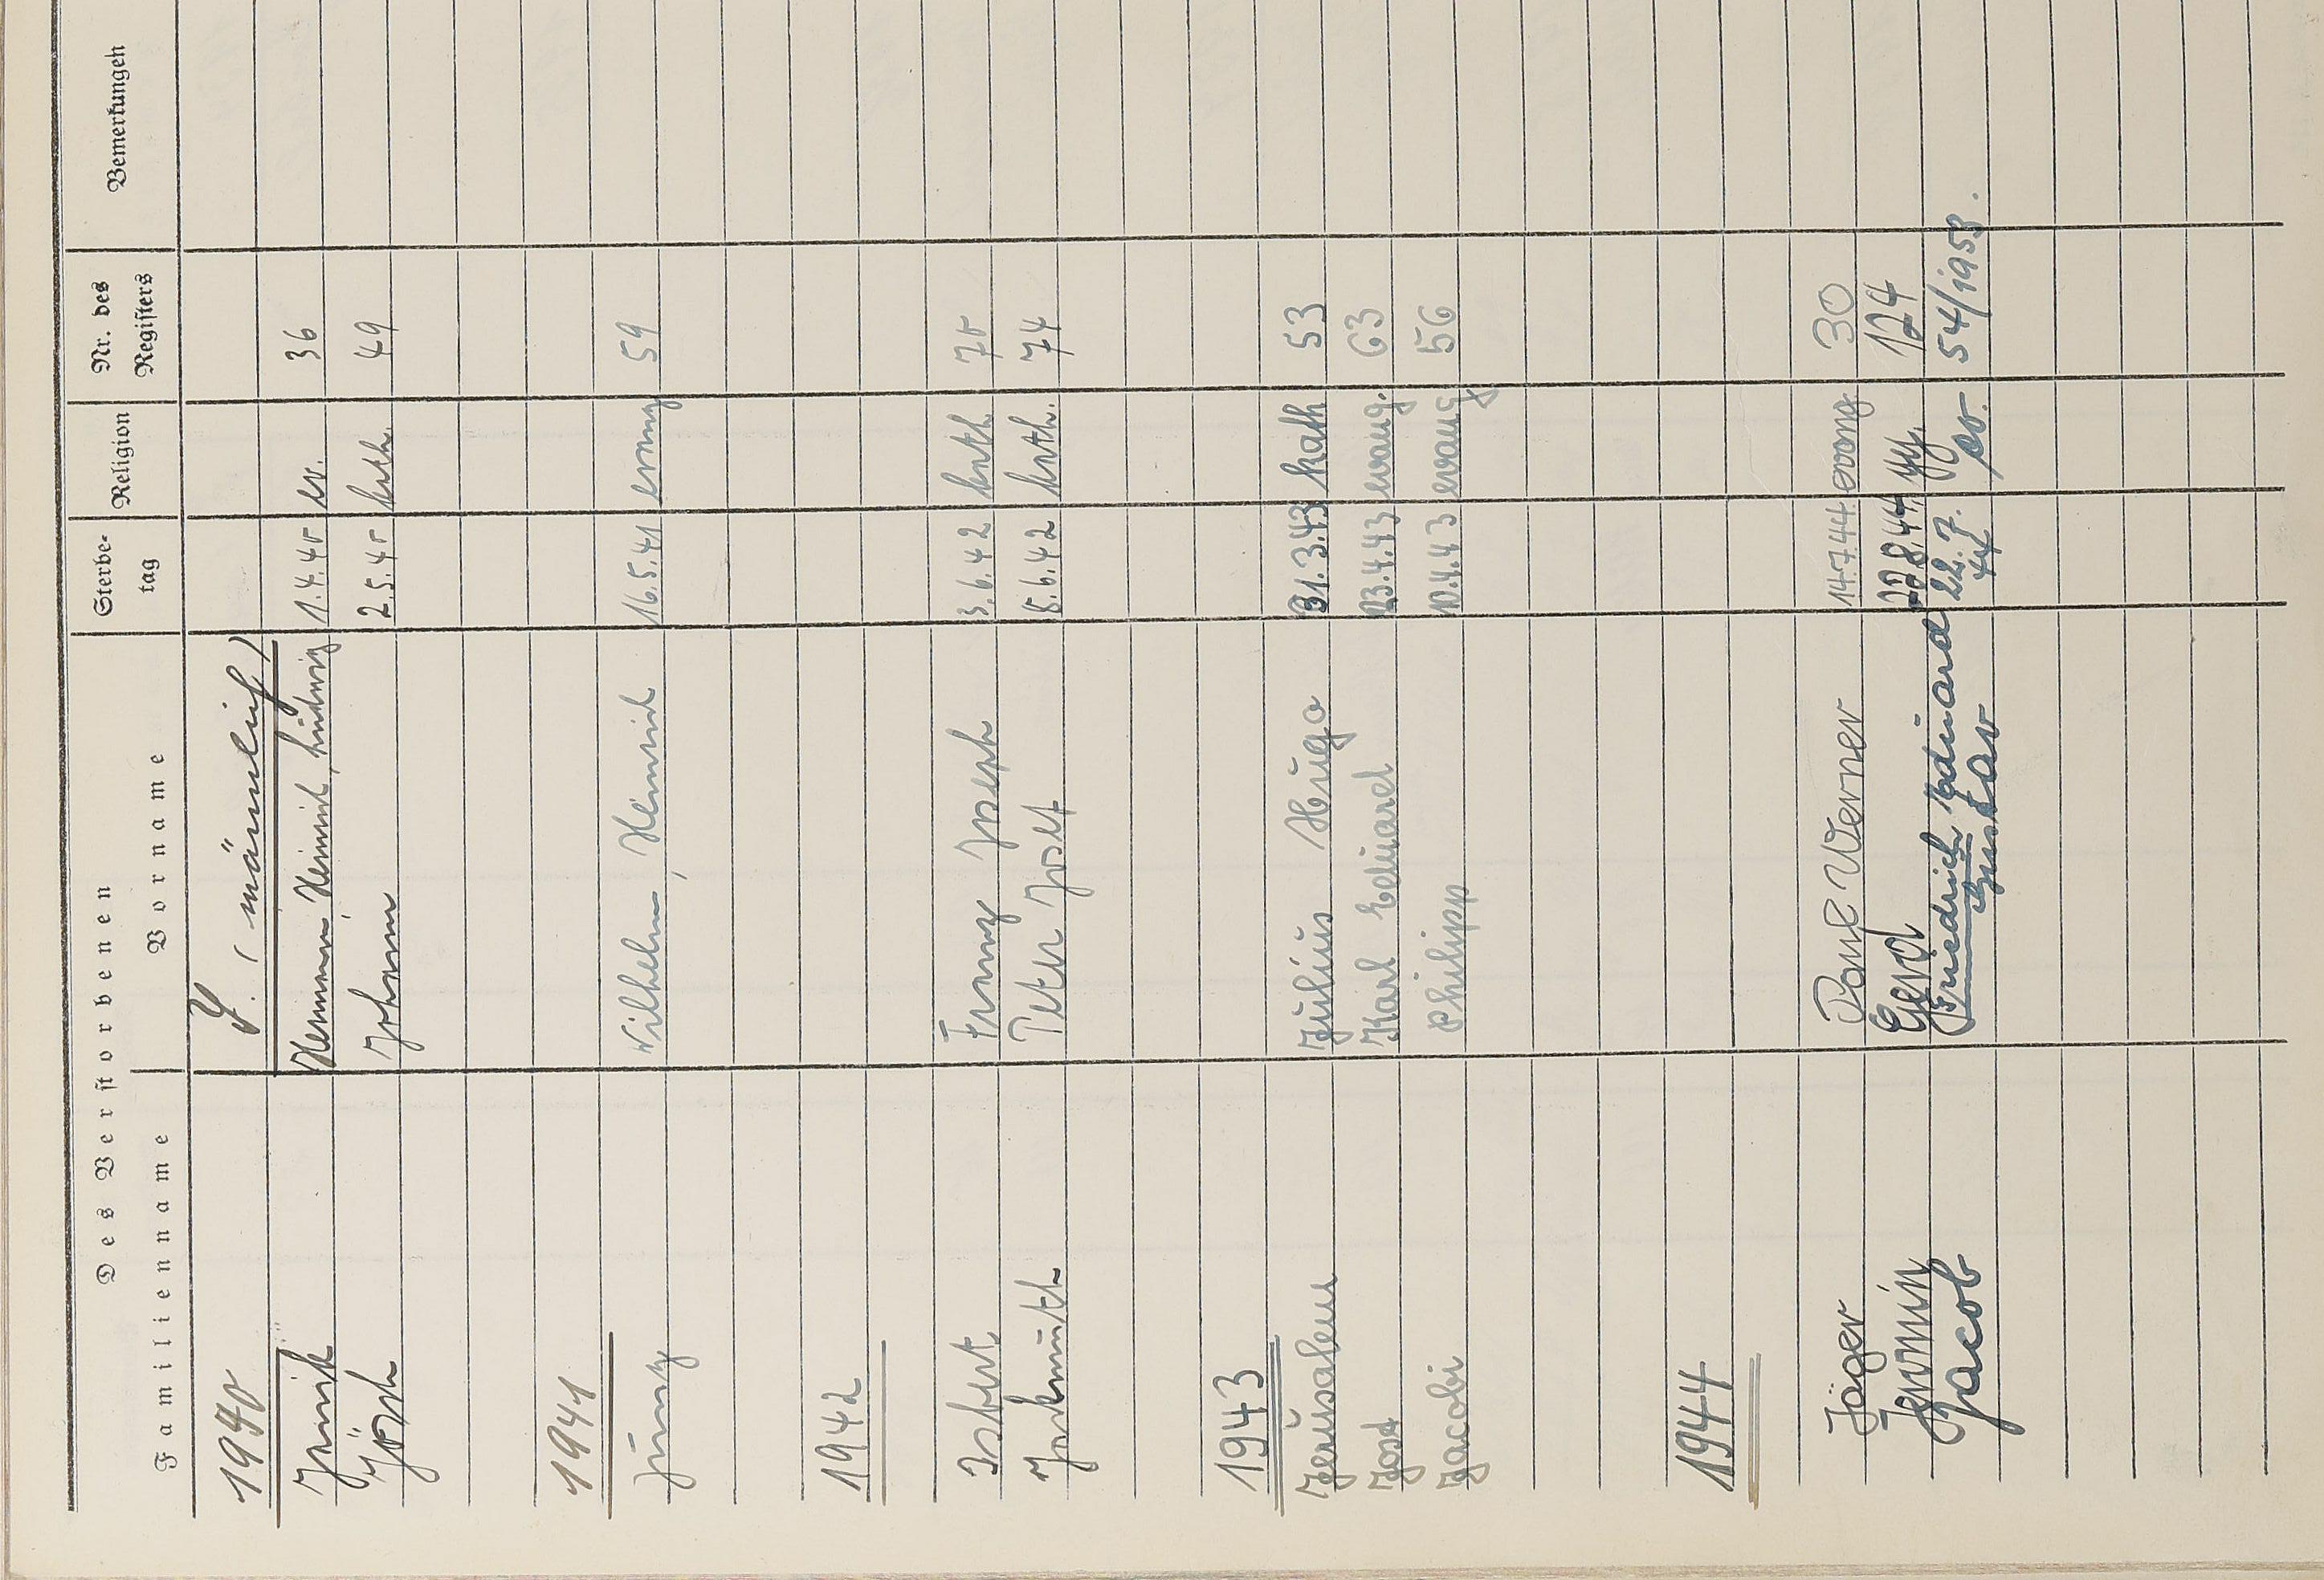 Des Verstorbenen
Familienname Vorname Sterbe-tag Religion Nr. des Registers Bemerkungen
1940 J. (männlich)
Hermann, Heinrich, Ludwig 1.4.40 ev. 36
Johann 2.5.40 kath. 49
1941
Jung Wilhelm, Heinrich 16.5.41 evang 59
1942
Isbert Franz Joseph 3.6.42 kath 70
Peter Josef 5.6.42 kath. 74
1943
Jerusalem Julius Hugo 31.3.43 kath 53
Jost Karl Eduard 23.4.43 evang. 63
Jacobi Philipp 10.4.43 evang 56
1944
Jäger Paul Werner 14.7.44 evang 30
Jeromin Gerd 22.8.44 gg. 124
Jacob Friedrich Eduard 22.7. ev. 54/1953.
Gustav 44